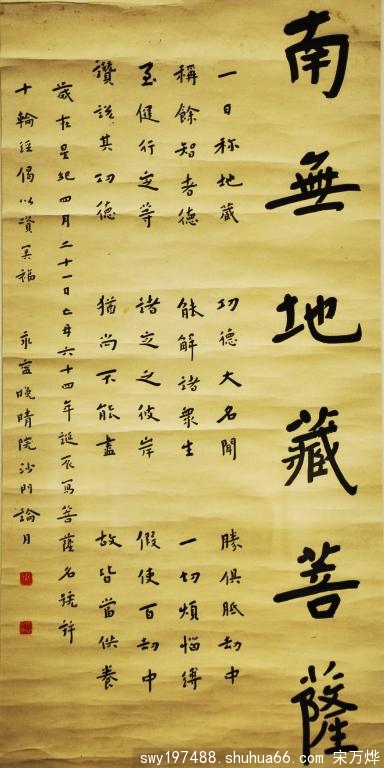 南無地藏菩薩
一日称地藏 功德大名聞 勝俱胝劫中
稱餘智者德 能解諸衆生 一切煩惱縛
至健行定等 諸定之彼岸 假使百劫中
讚說其功德 猶尚不能盡 故皆當供養
歲在星紀四月二十一日亡母六十四年誕辰寫菩薩名號并
十輪經偈以資冥福 永寧晚晴院沙門論月
swy197488.shuhua66.com 宋万烨